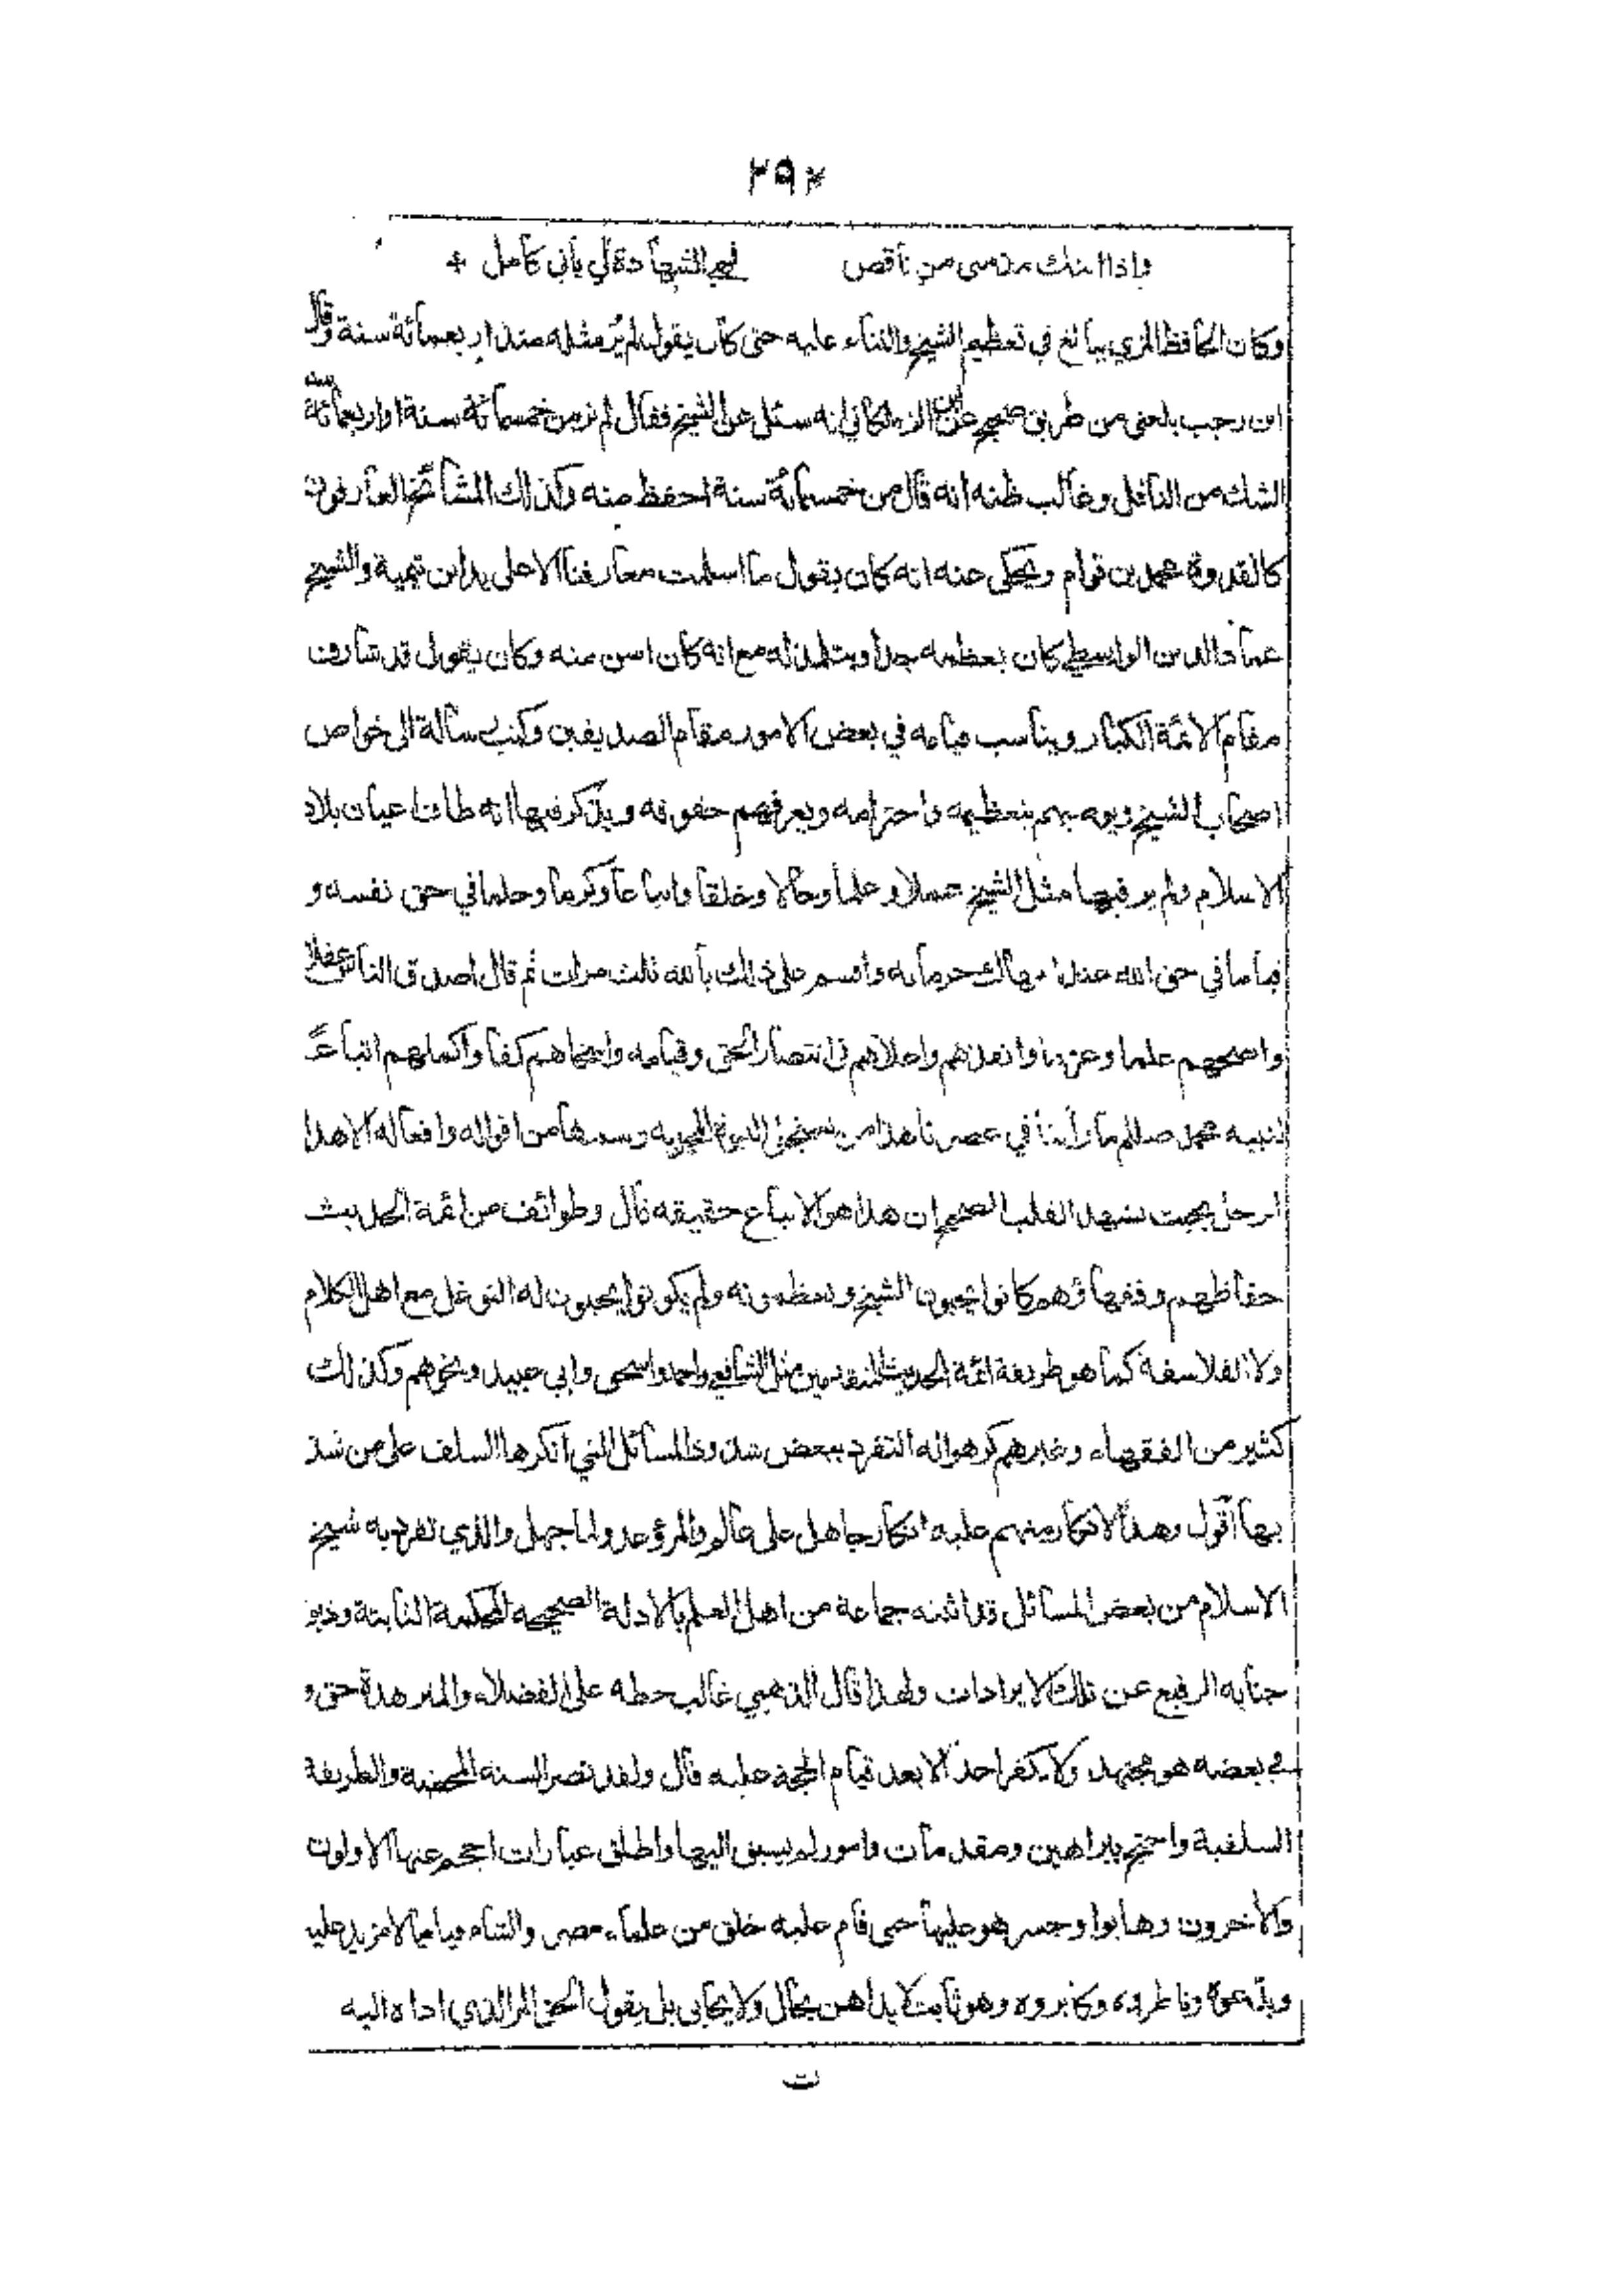 ٢٩٢
واذا اتتك مذمتى من ناقص فهي الشهادة لي باني كامل
وكان الحافظ المزي يبالغ في تعظيم الشيخ والثناء عليه حتى كان يقول لم يُر مثله منذ اربعمائة سنة وقال
ابن رجب بلغني من طريق صحيح عن ابن الزملكاني انه سئل عن الشيخ فقال لم نر من خمسمائة سنة او اربعمائة سنة
الشك من الناقل وغالب ظنه انه قال من خمسمائة سنة احفظ منه وكذلك المشائخ العارفون
كالقدوة محمد بن قوام ويحكى عنه انه كان يقول ما اسلمت معارفنا الا على يد ابن تيمية والشيخ
عماد الدين الواسطي كان يعظمه جدا ويتلمذ له مع انه كان اسن منه وكان يقول قد شارف
مقام الائمة الكبار ويناسب قيامه في بعض الامور مقام الصديقين وكتب رسالة الى خواص
اصحاب الشيخ ويوصيهم بتعظيمه واحترامه ويعرفهم حقوقه ويذكر فيها انه طاف اعيان بلاد
الاسلام ولم ير فيها مثل الشيخ عملا وعلما وحالا وخلقا واتباعا وكرما وحلما في حق نفسه و
قياما في حق الله عند انتهاك حرماته واقسم على ذلك بالله ثلث مرات ثم قال اصدق الناس عقدا
واصحهم علما وعزما وانفذهم واعلاهم في انتصار الحق وقيامه واسخاهم كفا واكملهم اتباعا
لنبيه محمد صللم ما رأينا في عصرنا هذا من تستجلى النبوة المحمدية وسننها من اقواله وافعاله الا هذا
الرجل بحيث يشهد القلب الصحيح ان هذا هو الاتباع حقيقة قال وطوائف من ائمة الحديث
حفاظهم وفقهاؤهم كانوا يحبون الشيخ ويعظمونه ولم يكونوا يحبون له التوغل مع اهل الكلام
ولا الفلاسفة كما هو طريقة ائمة الحديث المتقدمين مثل الشافعي واحمد واسحق وابي عبيد ونحوهم وكذلك
كثير من الفقهاء وغيرهم كرهوا له التفرد ببعض شذوذ المسائل التي انكرها السلف على من شذ
بها اقول وهذا الانكار منهم عليه انكار جاهل على عالم والمرؤ عدو لما جهل والذي تفرد به شيخ
الاسلام من بعض المسائل قد اثبته جماعة من اهل العلم بالادلة الصحيحة المحكمة الثابتة وذبو
جنابه الرفيع عن تلك الايرادات ولهذا قال الذهبي غالب حطه على الفضلاء والمتزهدة حق و
في بعضه هو مجتهد ولا يكفر احدا الا بعد قيام الحجة عليه قال ولقد نصر السنة المحضة والطريقة
السلفية واحتج ببراهين ومقدمات وامور لم يسبق اليها واطلق عبارات احجم عنها الاولون
والآخرون وهابوا وجسر هو عليها حتى قام عليه خلق من علماء مصر والشام قياما لا مزيد عليه
وبدّعوه وناظروه وكابروه وهو ثابت لا يداهن بحال ولا يحابي بل يقول الحق المر الذي اداه اليه
ت